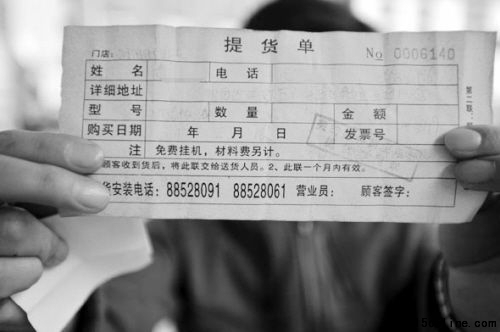 提货单
门店：
No 0006140
姓名 电话
详细地址
型号 数量 金额
购买日期 年 月 日 发票号
注 免费挂机，材料费另计。
顾客收到货后，将此联交给送货人员。2、此联一个月内有效。
货安装电话：88528091 88528061 营业员： 顾客签字：
第二联